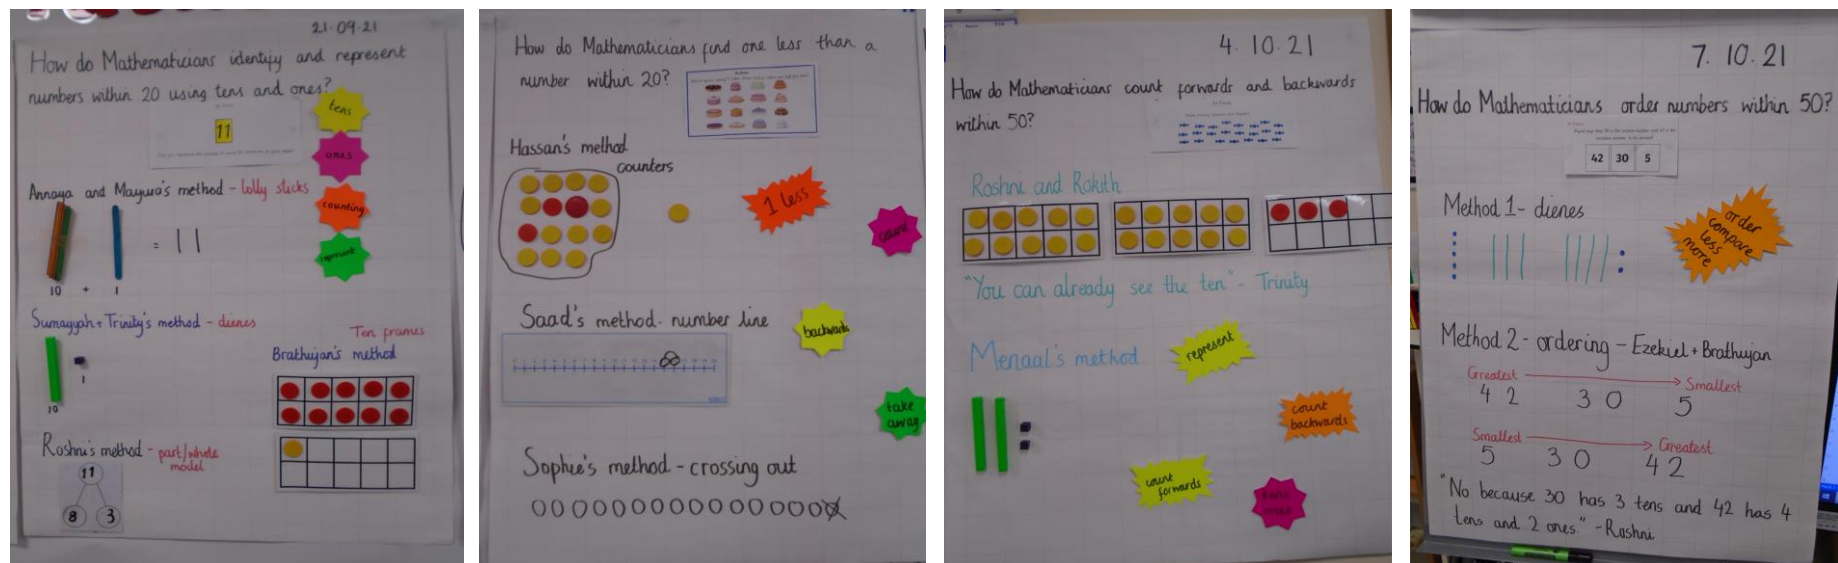 21.09.21
How do Mathematicians identify and represent
numbers within 20 using tens and ones?
11
tens
ones
counting
represent
Annaya and Mayura's method - lolly sticks
= 11
10 + 1
Sumayyah + Trinity's method - dienes
10
1
Ten frames
Brathujan's method
Roshni's method - part/whole
model
11
8 3
How do Mathematicians find one less than a
number within 20?
Hassan's method
counters
1 less
count
Saad's method - number line
backwards
take
away
Sophie's method - crossing out
4.10.21
How do Mathematicians count forwards and backwards
within 50?
Roshni and Rakith
"You can already see the ten" - Trinity
Menaal's method
represent
count
backwards
count
forwards
tens
ones
7.10.21
How do Mathematicians order numbers within 50?
42 30 5
Method 1 - dienes
order
compare
less
more
Method 2 - ordering - Ezekiel + Brathujan
Greatest Smallest
42 30 5
Smallest Greatest
5 30 42
"No because 30 has 3 tens and 42 has 4
tens and 2 ones." - Roshni